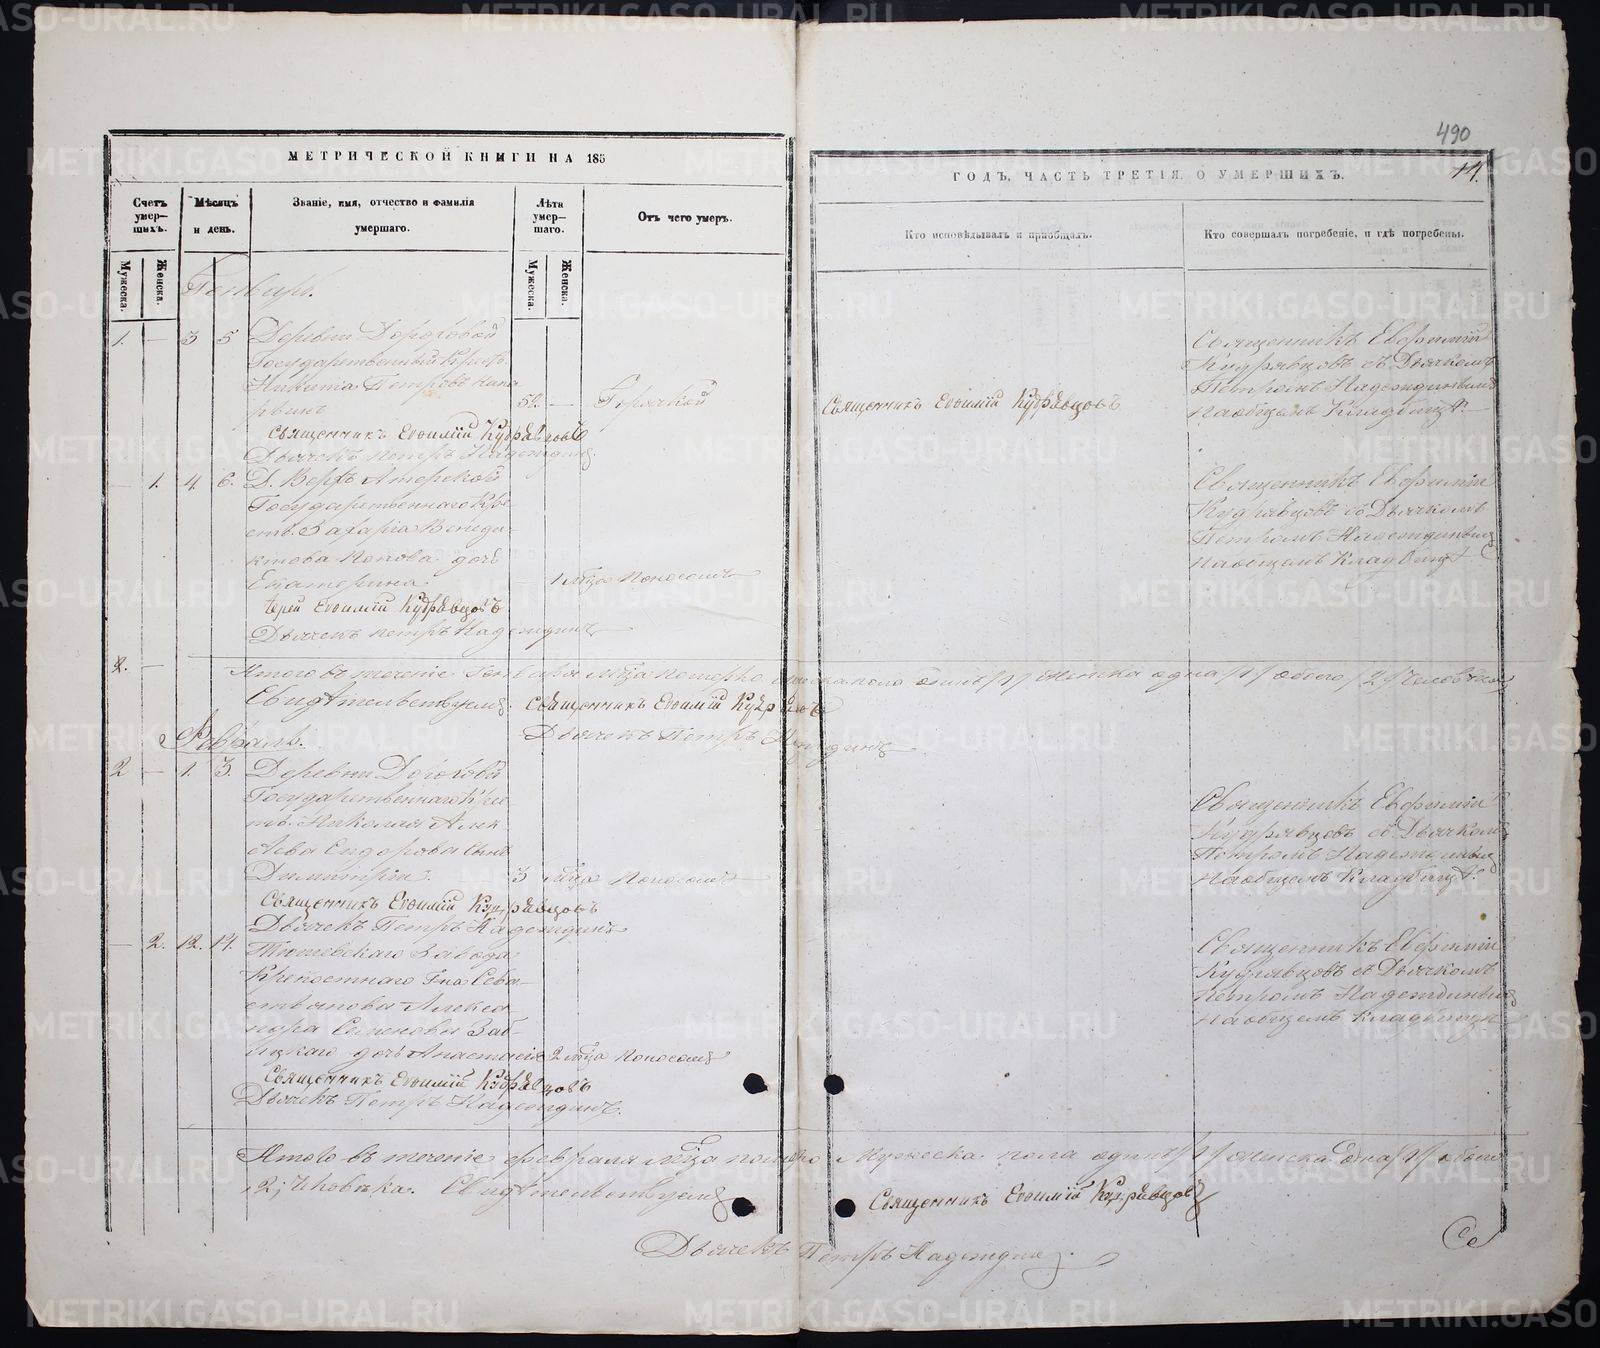 490
МЕТРИЧЕСКОЙ КНИГИ НА 185
ГОДЪ, ЧАСТЬ ТРЕТІЯ. О УМЕРШИХЪ.
14.
Счетъ умер-шихъ.
Мѣсяцъ и день.
Званіе, имя, отчество и фамилія умершаго.
Лѣта умер-шаго.
Отъ чего умеръ.
Кто исповѣдывалъ и пріобщалъ.
Кто совершалъ погребеніе, и гдѣ погребены.
Мужеска.
Женска.
Мужеска.
Женска.
Генварь.
1. — 3 5 Деревни Дороховой
Государственный Крест.
Никита Петровъ
52. — Горячкой
Священникъ Евѳимій Кудрявцовъ
Дьячекъ Петръ Надеждинъ.
Священникъ Евѳимій Кудрявцовъ
Священникъ Евфимій
Кудрявцовъ съ Дьячкомъ
Петромъ Надеждинымъ
на общемъ Кладбищѣ.
— 1. 4. 6. Д. Верхъ
Государственнаго Кре-
ст. Захаріа Венеди-
ктова Попова дочь
Екатерина — 1 мѣца Поносомъ
Іерей Евѳимій Кудрявцовъ
Дьячекъ Петръ Надеждинъ
Священникъ Евфимій
Кудрявцовъ съ Дьячкомъ
Петромъ Надеждинымъ
на общемъ Кладбищѣ
2. —
Итого въ теченіе Генваря мѣца померло мужеска пола одинъ /1/ женска одна /1/ обоего /2/ Человѣка
Свидѣтельствуемъ. Священникъ Евѳимій Кудрявцовъ
Дьячекъ Петръ Надеждинъ
Февраль.
2 — 1. 3. Деревни Дороховой
Государственнаго Крес-
т. Николая Алек
Сидорова сынъ
Димитрій. 3 мѣца Поносомъ
Священникъ Евѳимій Кудрявцовъ
Дьячекъ Петръ Надеждинъ
Священникъ Евфимій
Кудрявцовъ съ Дьячкомъ
Петромъ Надеждинымъ
на общемъ Кладбищѣ.
— 2. 12. 14. Завода
Крепостнаго Гна Сева-
стьянова Алекса-
ндра Семенова
дочь Анастасія 2 мѣца Поносомъ
Священникъ Евѳимій Кудрявцовъ
Дьячекъ Петръ Надеждинъ.
Священникъ Евфимій
Кудрявцовъ съ Дьячкомъ
Петромъ Надеждинымъ
на общемъ кладбищѣ
Итого въ теченіе февраля мѣца померло Мужеска пола одинъ /1/ женска одна /1/ обоего
/2/ Человѣка. Свидѣтельствуемъ
Священникъ Евѳимій Кудрявцовъ
Дьячекъ Петръ Надеждинъ.
Се
METRIKI.GASO-URAL.RU